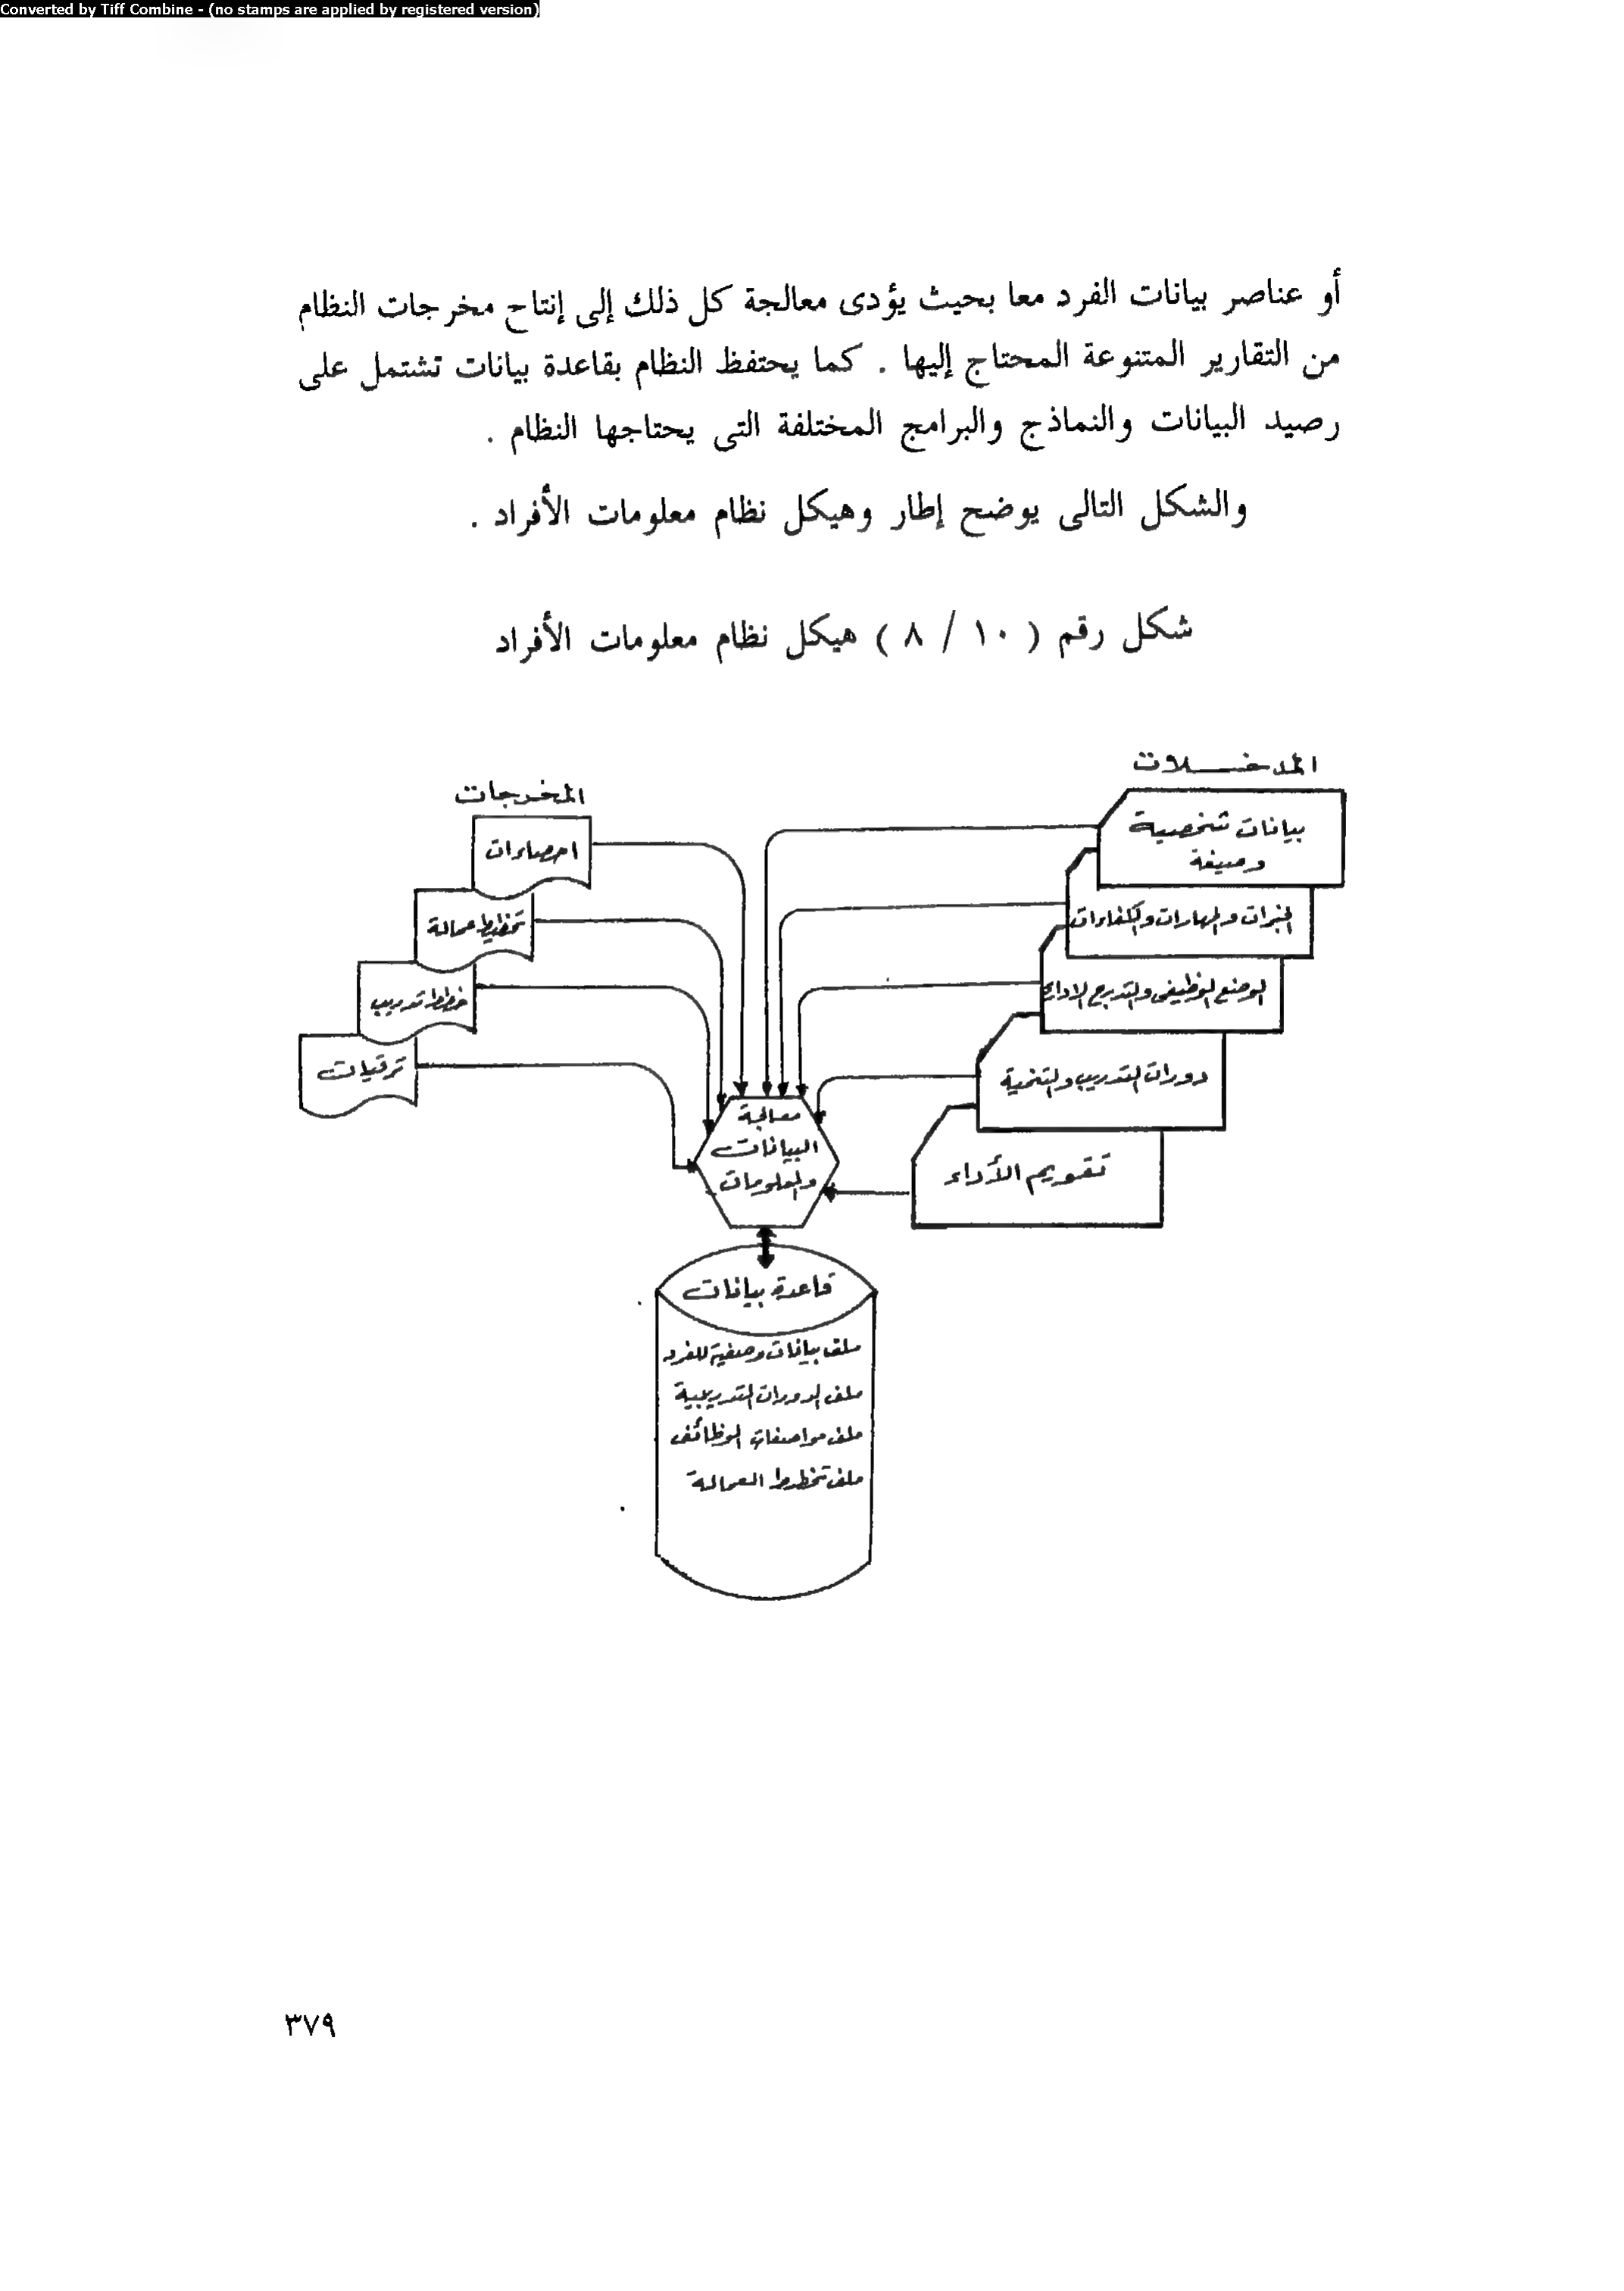 Converted by Tiff Combine - (no stamps are applied by registered version)
أو عناصر بيانات الفرد معا بحيث يؤدى معالجة كل ذلك إلى إنتاج مخرجات النظام
من التقارير المتنوعة المحتاج إليها . كما يحتفظ النظام بقاعدة بيانات تشتمل على
رصيد البيانات والنماذج والبرامج المختلفة التى يحتاجها النظام .
والشكل التالى يوضح إطار وهيكل نظام معلومات الأفراد .
شكل رقم ( ١٠ / ٨ ) هيكل نظام معلومات الأفراد
المدخلات
بيانات شخصية
وصيغة
الخبرات والمهارات والكفاءات
الوضع الوظيفى والتدرج الادارى
دورات التدريب والتنمية
تقويم الأداء
المخرجات
احصاءات
تخطيط عمالة
خطط تدريب
ترقيات
معالجة
البيانات
والمعلومات
قاعدة بيانات
ملف بيانات وصفية للفرد
ملف الدورات التدريبية
ملف مواصفات الوظائف
ملف تخطيط العمالة
٣٧٩